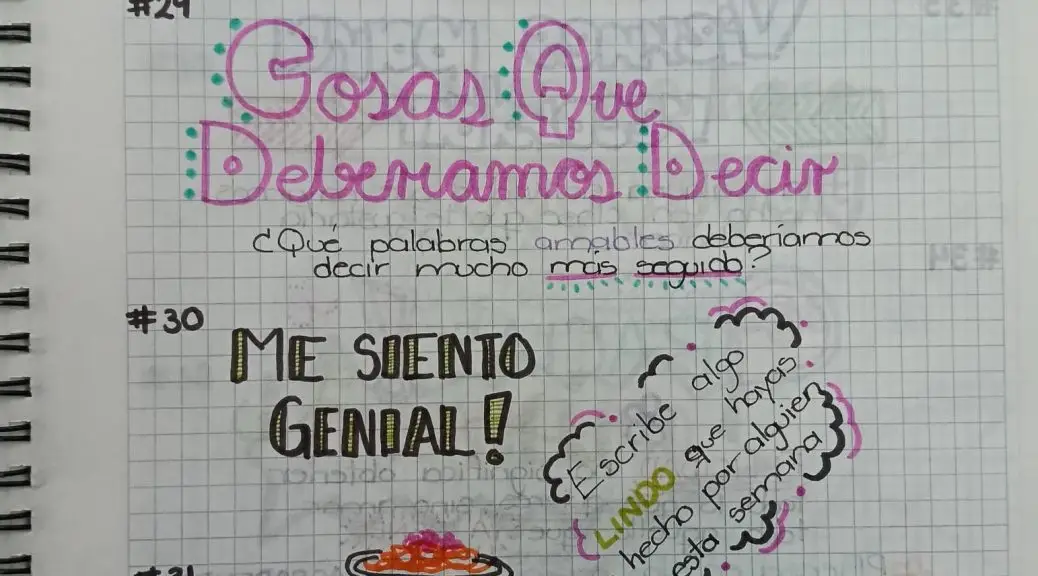 #29
Cosas Que
Deberiamos Decir
¿Qué palabras amables deberíamos
decir mucho más seguido?
#30
ME SIENTO
GENIAL!
Escribe algo
LINDO que hayas
hecho por alguien
esta semana
#31